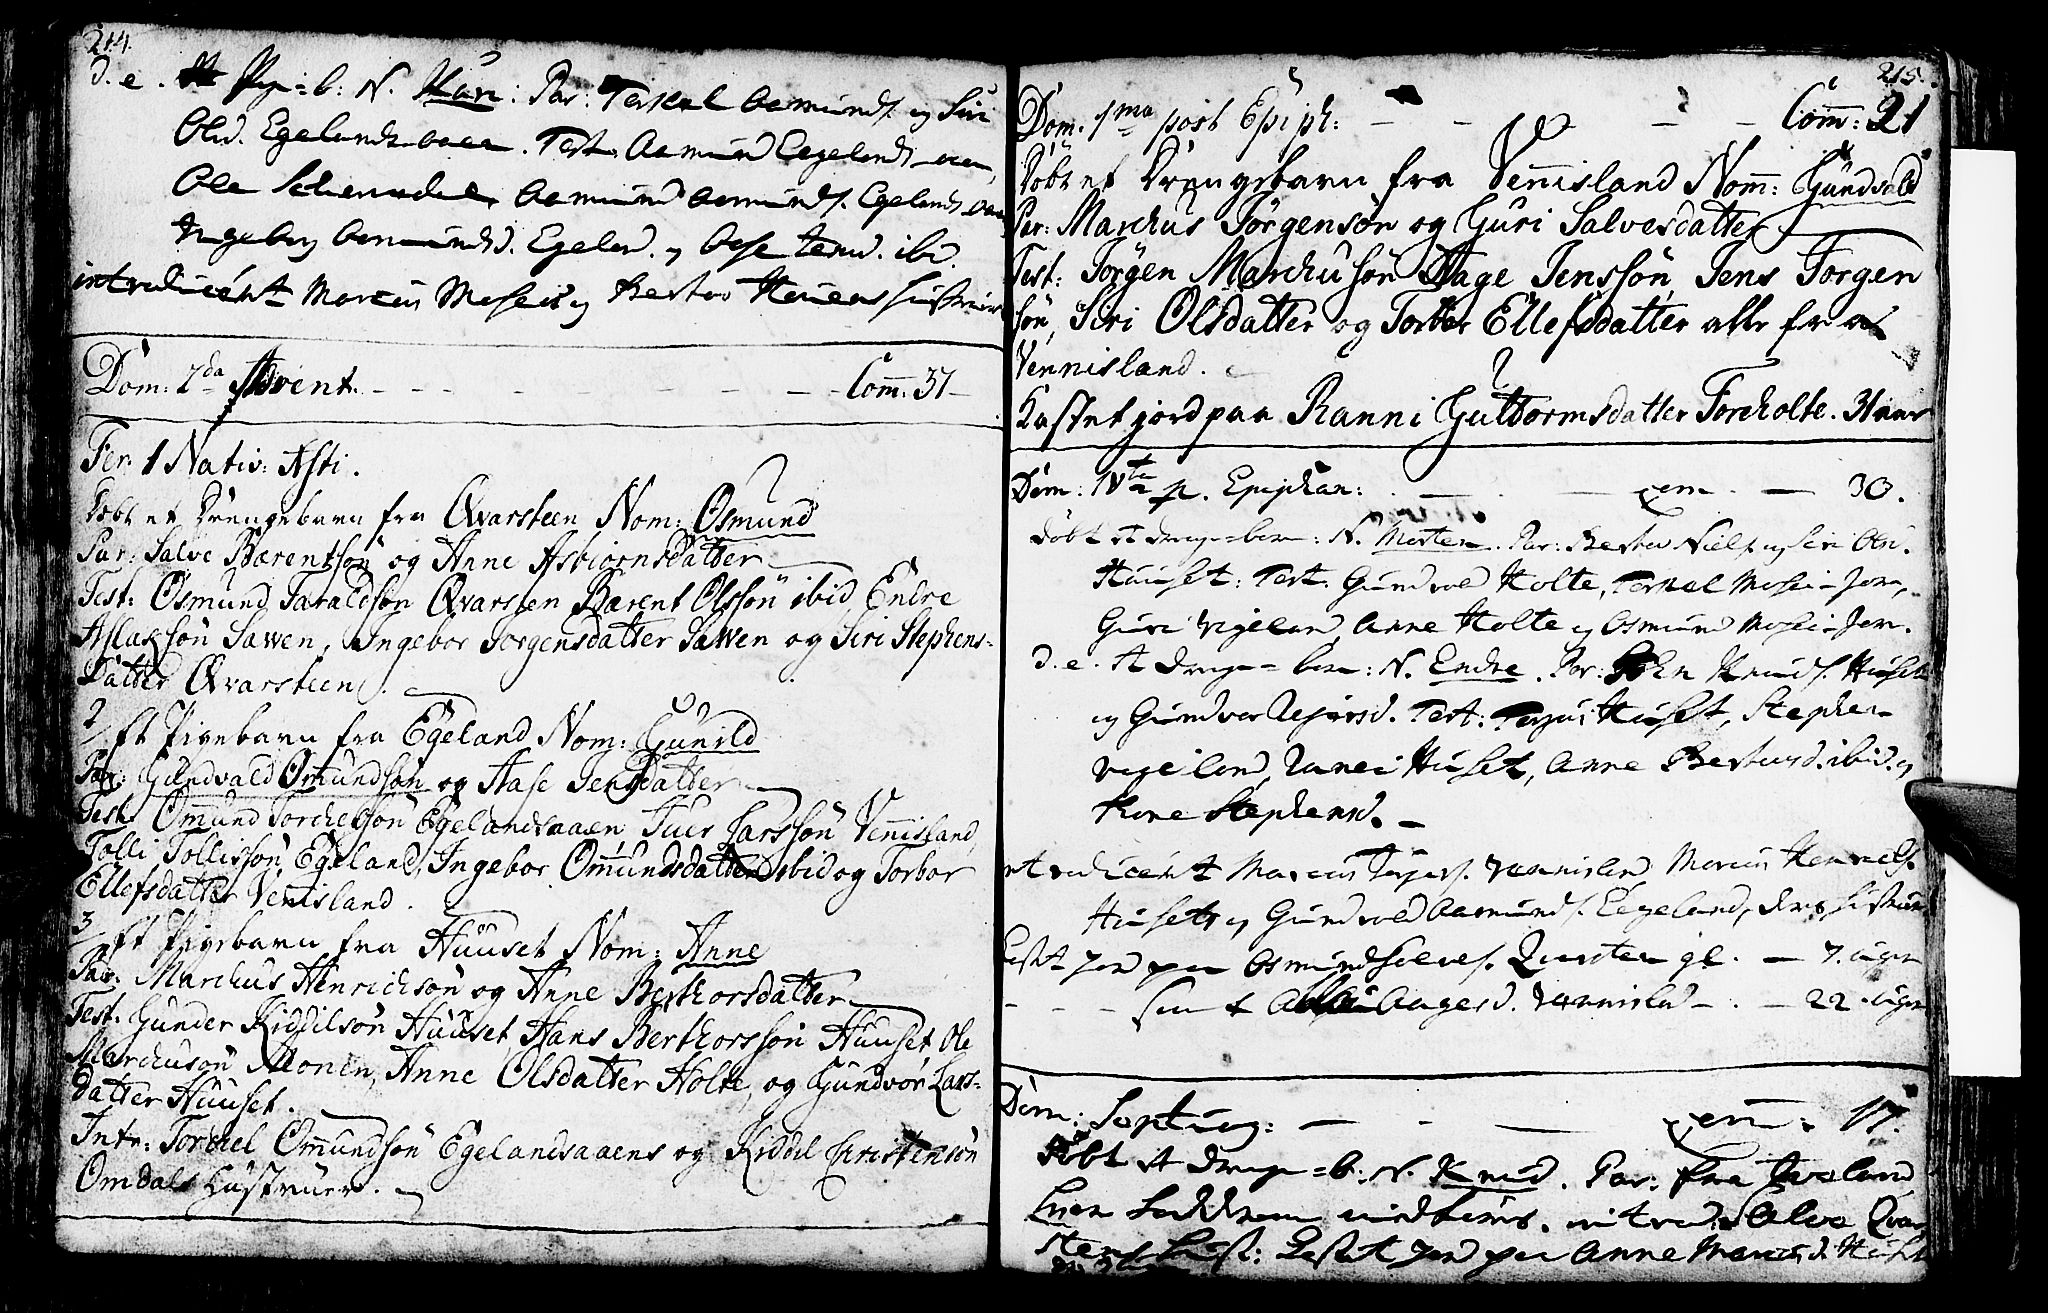 214.
d. e. et Pige=b: N. Kari: Par: Torkel Aamunds. og Siri
Olsd. Egelandsaaen. Test. Aamund Egelandsaaen,
Ole Aamund Aamunds. Egelandsaaen
Ingebor Aamundsd. Egeland. og Aase ibid.
introduceret Marcus Moseid og Berthor Huusets Hustruer
Dom: 2da Advent. - - - - - - - Com: 37 -
Fer: 1 Nativ: Xsti.
Döbt et Drengebarn fra Qvarsteen Nom: Osmund
Par: Salve Bærentsön og Anne Asbiornsdatter
Test: Osmund Taraldsön Qvarsten Bærent Olssön ibid, Endre
Aslaxsön Sawen, Ingebor Jorgensdatter Sawen og Siri Stephens-
datter Qvarsteen.
2/ Et Pigebarn fra Egeland Nom: Gunild
Par: Gundvald Omundsön og Aase Jensdatter
Test: Omund Torchelsön Egelandsaaen, Iuer Larssön Vennisland,
Tolli Tollissön Egeland, Ingebor Omundsdatter ibid og Torbor
Ellefsdatter Venisland.
3/ Et Pigebarn fra Huuset Nom: Anne
Par: Marchus Henrichsön og Anne Berthorsdatter
Test: Gunder Kiddilsön Huuset, Hans Berthorssön Huuset, Ole
Marchusön Monen, Anne Olsdatter Holte, og Gundvor Lars-
datter Huuset.
Intr: Torchel Omundsön Egelandsaaens og Kiddil Christensön
Omdals Hustruer.
215.
Dom. 1ma post Epiph: - - - - Com: 21
Döbt et Drengebarn fra Vennisland Nom: Gundvald
Par: Marchus Jörgensön og Guri Salvesdatter
Test: Jörgen Marchusön Aage Jenssön, Jens Jorgen
sön, Siri Olsdatter og Torbor Ellefsdatter alle fra
Vennisland.
Kastet jord paa Ranni Guttormsdatter Foreholte. 31 aar
Dom: IVta p. Epiphan: - - - Com. - 30.
Döbt et drenge=barn: N. Morten. Par: Berthor Niels. og Siri Olsd.
Huuset: Test. Gundvald Holte, Torkel Mosei-Jorn,
Guri Vigeland, Anne Holte og Osmund Mosei-Jorn.
d. e. et drenge=barn: N. Endre. Par: John Knuds. Huuset
og Gundvor Test: Huuset, Stephen
Vigeland, Huuset, Anne Berthorsd. ibid. og
Kore Stephensd. -
introduceret Marcus Jörgens. Vennisland Marcus Henrichs.
Huusets og Gundvold Aamunds. Eegeland, deres Hustruer
Kastet Jord paa Osmund Salves. Qvarsten gl. - 7. uger
- - - samt Aagesd. Vennisland - . - 22. uger
Dom: Septuag: - - - Com: 17.
Döbt et drenge=b: N. Knud. Par: fra Iveland
introd: Salve Qvar
stens Hust: Kastet Jord paa Anne Marcusd. Huuset